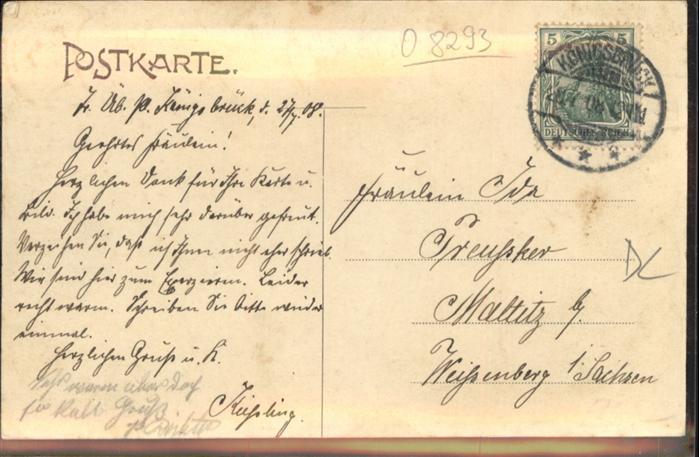 POSTKARTE.
O 8293
5 5
KÖNIGSBRÜCK
DEUTSCHES REICH
Tr. Üb. Pl. Königsbrück, d. 27/7. 08.
Geehrtes Fräulein!
Herzlichen Dank für Ihre Karte u.
Bild. Ich habe mich sehr darüber gefreut.
Verzeihen Sie, daß ich Ihnen nicht eher schrieb.
Wir sind hier zum Exerzieren. Leider
recht warm. Schreiben Sie bitte wieder
einmal.
Herzlichen Gruß u. K.
Kießling.
warm aber doch
so kalt Gruß
Fräulein Ida
Preusker
Maltitz b/
Weißenberg i/Sachsen
DL